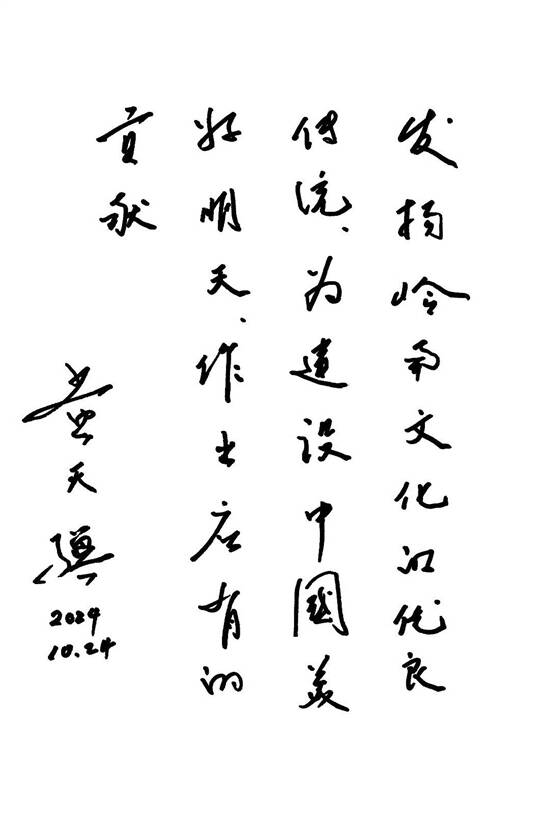 发扬岭南文化的优良
传统、为建设中國美
好明天、作出应有的
贡献
黄天骥
2024
10.24